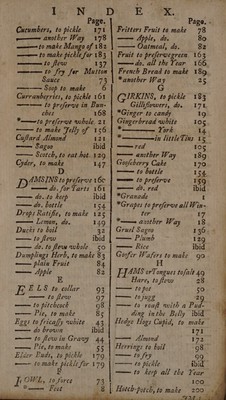 INDEX.
Page.
Cucumbers, to pickle 171
—— another Way 178
—— to make Mango of 182
—— to make pickle for 183
—— to stew 137
—— to fry for Mutton
Sauce 73
—— Soop to make 6
Curranberries, to pickle 161
—— to preserve in Bunches 168
*—— to preserve whole 21
—— to make Jelly of 156
Custard Almond 121
—— Sagoe ibid
—— Scotch, to eat hot 129
Cyder, to make 147
D
DAMSINS to preserve 160
—— do. for Tarts 161
—— do. to keep ibid
—— do. bottle 154
Drops Ratifia, to make 125
—— Lemon, do. 149
Ducks to boil 32
—— to stew ibid
—— do. to stew whole 50
Dumplings Herb, to make 83
—— plain Fruit 84
—— Apple 82
E
EELS to collar 93
—— to stew 97
—— to pitchcock 98
—— Pie, to make 85
Eggs to fricassy white 43
—— do brown ibid
—— to stew in Gravy 44
—— Pie, to make 55
Elder Buds, to pickle 179
—— to make pickle for 179
F
FOWL, to force 73
*—— Feet 2
Page.
Fritters Fruit to make 78
—— Apple, do. 80
—— Oatmeal, do. 82
Fruit to preserve green 163
—— do. all the Year 166
French Bread to make 189
*another Way 25
G
GIRKINS, to pickle 183
Gilliflowers, do. 171
*Ginger to candy 19
Gingerbread white 105
*—— York 14
*—— in little Tins 11
—— red 105
—— another Way 189
Gooseberry Cake 170
—— to bottle 155
—— to preserve 159
—— do. red ibid
*Granade
*Grapes to preserve all Winter 17
*—— another Way 18
Gruel Sagoe 136
—— Plumb 129
—— Rice ibid
Gofer Wafers to make 90
H
HAMS or Tongues to salt 49
Hare, to stew 28
—— to pot 50
—— to jugg 29
—— to roast with a Pudding in the Belly ibid
Hedge Hogs Cupid, to make
171
—— Almond 172
Herrings to boil 98
—— to fry 99
—— to pickle ibid
—— to keep all the Year
100
Hotch-potch, to make 200